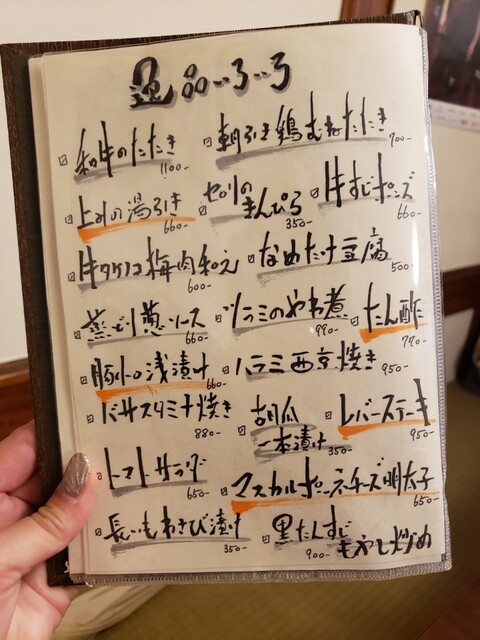 逸品いろいろ
和牛のたたき 1100-
朝引き鶏むねたたき 700-
上ミノ湯引き 660-
セロリのきんぴら 350-
牛すじポンズ 660-
牛タケノコ梅肉和え 600-
なめたけ豆腐 500-
蒸し 葱ソース 660-
ツラミのやわ煮 990-
たん酢 790-
豚小の浅漬け 660-
ハラミ西京焼き 950-
バサスタミナ焼き 880-
胡瓜一本漬け 350-
レバーステーキ 950-
トマトサラダ 650-
マスカルポーネチーズ明太子 650-
長いもわさび漬け 350-
黒たんすじもやし炒め 900-